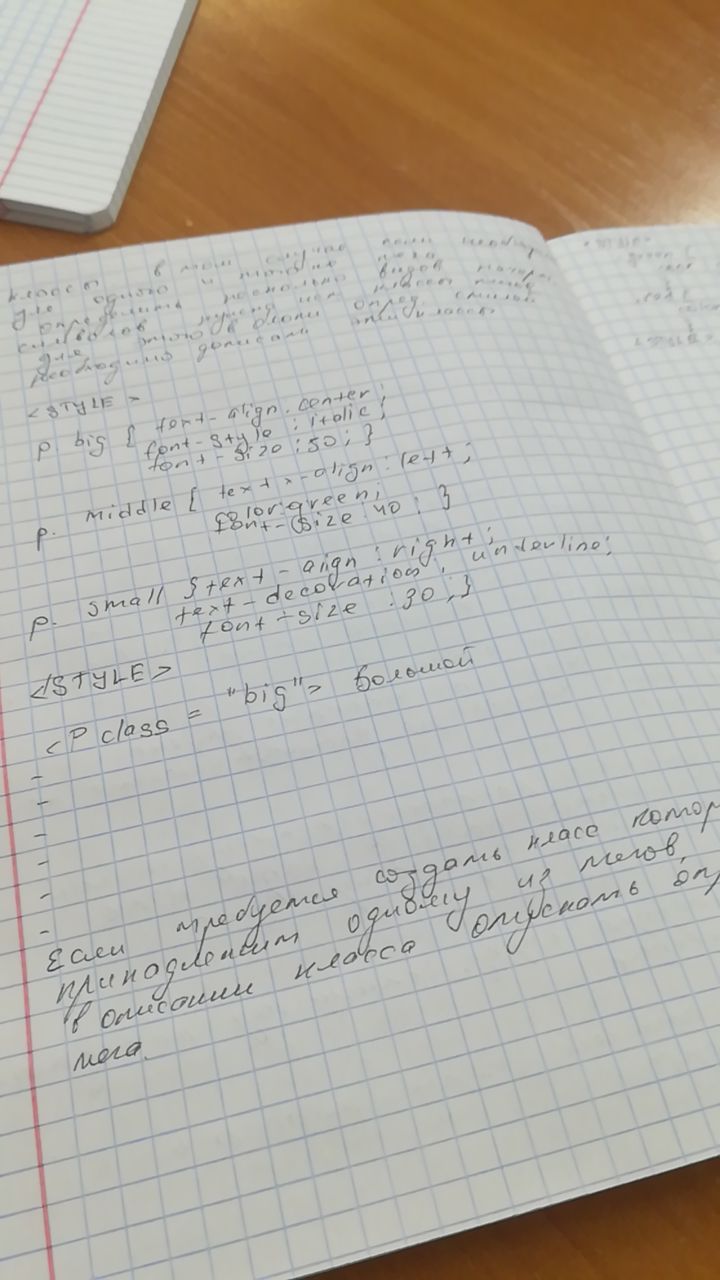 классы в том случае если необхо
для одного и того же тега
определить несколько видов
символов нужны
для этого в блоки опред. стилей
необходимо дописать эти классы
<STYLE>
p. big { text-align.center;
font-style : itolic;
font-size : 50; }
p. middle { text-align : left;
color:green;
font-size 40 : }
p. small { text-aign : right;
text-decoration : underline;
font-size : 30 ; }
</STYLE>
<P class = "big"> большой
-
-
-
-
-
-
Если требуется создать класс котор
принодлежит одному из тегов,
в описании класса опускать опр
тега.